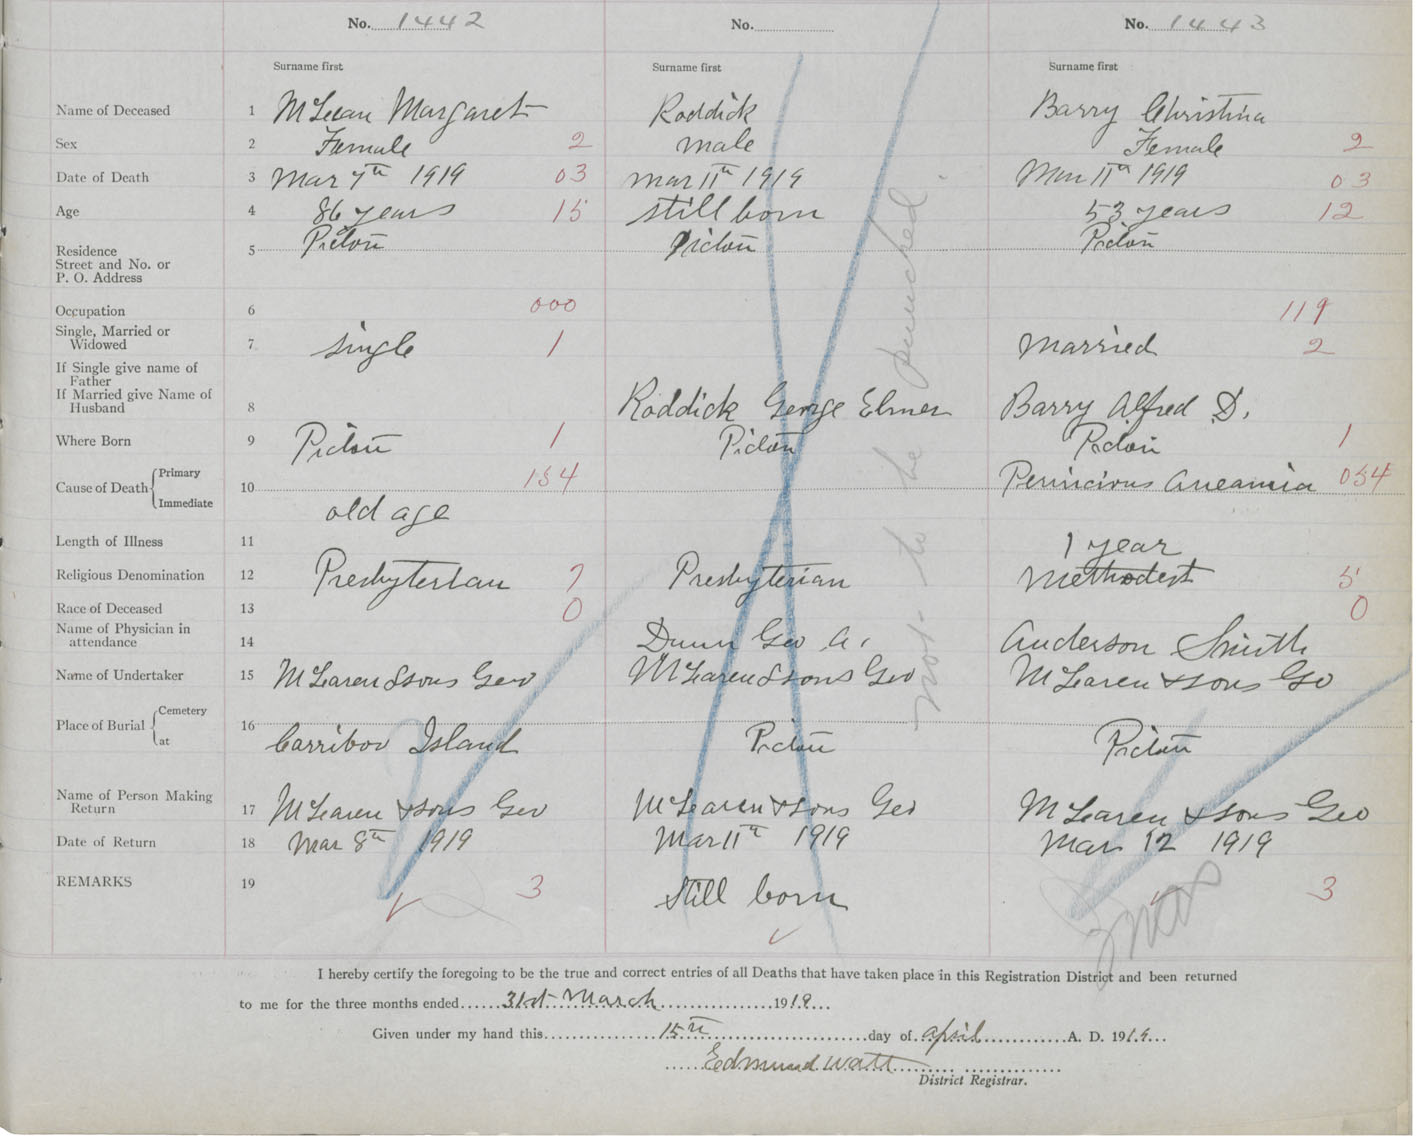 No. 1442 No. No. 1443
Surname first Surname first Surname first
Name of Deceased 1 McLean Margaret Roddick Barry Christina
Sex 2 Female 2 male Female 2
Date of Death 3 Mar 7th 1919 03 mar 11th 1919 Mar 11th 1919 03
Age 4 86 years 15 still born 53 years 12
Residence 5 Pictou Pictou Pictou
Street and No. or
P. O. Address
Occupation 6 000 119
Single, Married or
Widowed 7 single 1 Married 2
If Single give name of
Father
If Married give Name of
Husband 8 Roddick George Elmer Barry Alfred D.
Where Born 9 Pictou 1 Pictou Pictou 1
Cause of Death Primary Immediate 10 154 Pernicious Aneamia 054
old age
Length of Illness 11 1 year
Religious Denomination 12 Presbyterian 7 Presbyterian Methodest 5
Race of Deceased 13 0 0
Name of Physician in
attendance 14 Dunn Geo A. Anderson Smith
Name of Undertaker 15 McLaren & sons Geo McLaren & sons Geo McLaren & sons Geo
Place of Burial Cemetery at 16 Carribou Island Pictou Pictou
Name of Person Making
Return 17 McLaren & sons Geo McLaren & sons Geo McLaren & sons Geo
Date of Return 18 Mar 8th 1919 Mar 11th 1919 Mar 12 1919
REMARKS 19 3 Still born 3
not to be punched.
I hereby certify the foregoing to be the true and correct entries of all Deaths that have taken place in this Registration District and been returned
to me for the three months ended 31st March 1919
Given under my hand this 15th day of April A. D. 1919
Edmund Watt
District Registrar.